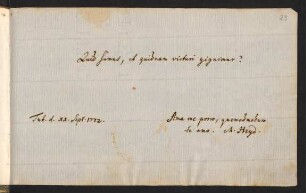 Quid sumus, et quidnam victuri gignimur?
Tub. d. XX. Sept. 1772.
Ama me porro, quemadmodum
te amo. M. Heyd.